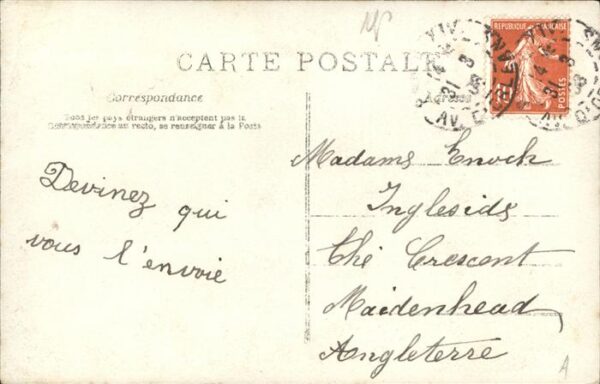 CARTE POSTALE
Correspondance
Tous les pays étrangers n'acceptent pas la
Correspondance au recto, se renseigner à la Poste
Devinez qui
vous l'envoie
Adresse
Madame Enoch
Ingleside
The Crescent
Maidenhead
Angleterre
POSTES
AV. D'ORLEANS
A